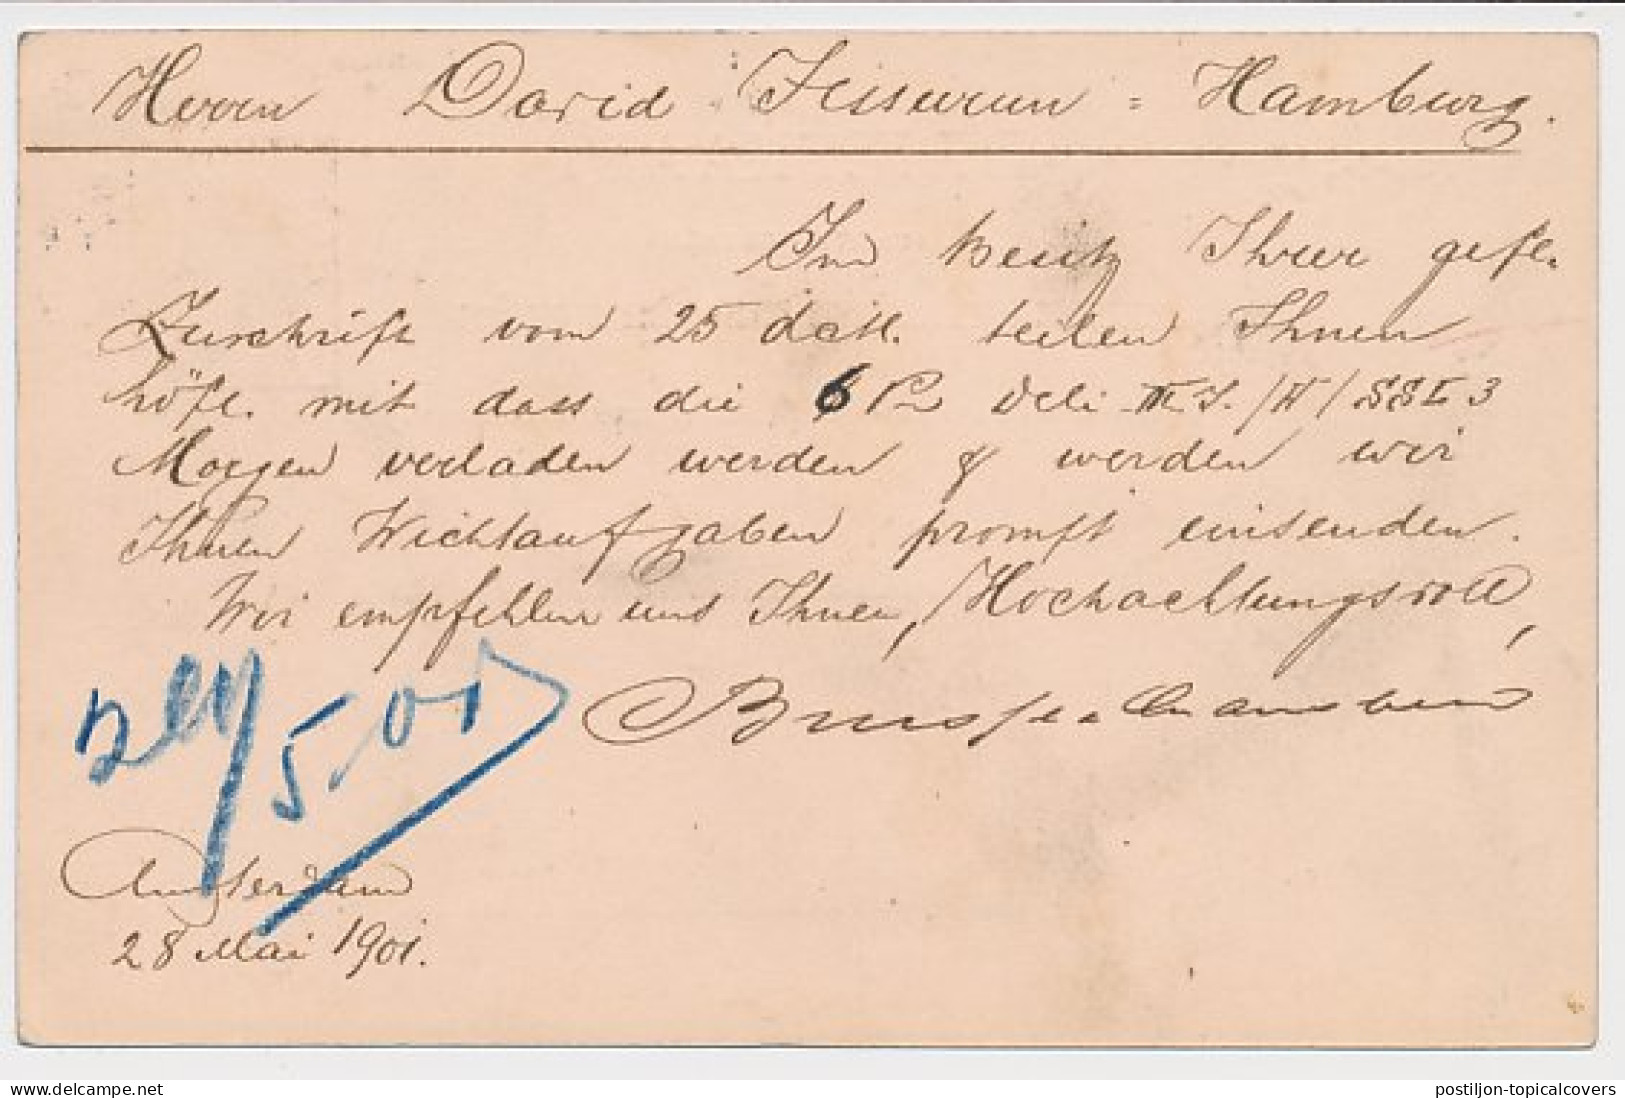 Herrn David Jessurun = Hamburg.
Im besitz Ihrer gefl.
Zuschrift vom 25 dss. teilen Ihnen
höfl. mit dass die 6 P/2 Deli /SSL 3
Morgen verladen werden & werden wir
Ihnen Wichtaufgaben promft einsenden.
Wir empfehlen uns Ihnen, Hochachtungsvoll,
29/5.01
Amsterdam
28 Mai 1901.
delcampe.net
postiljon-topicalcovers